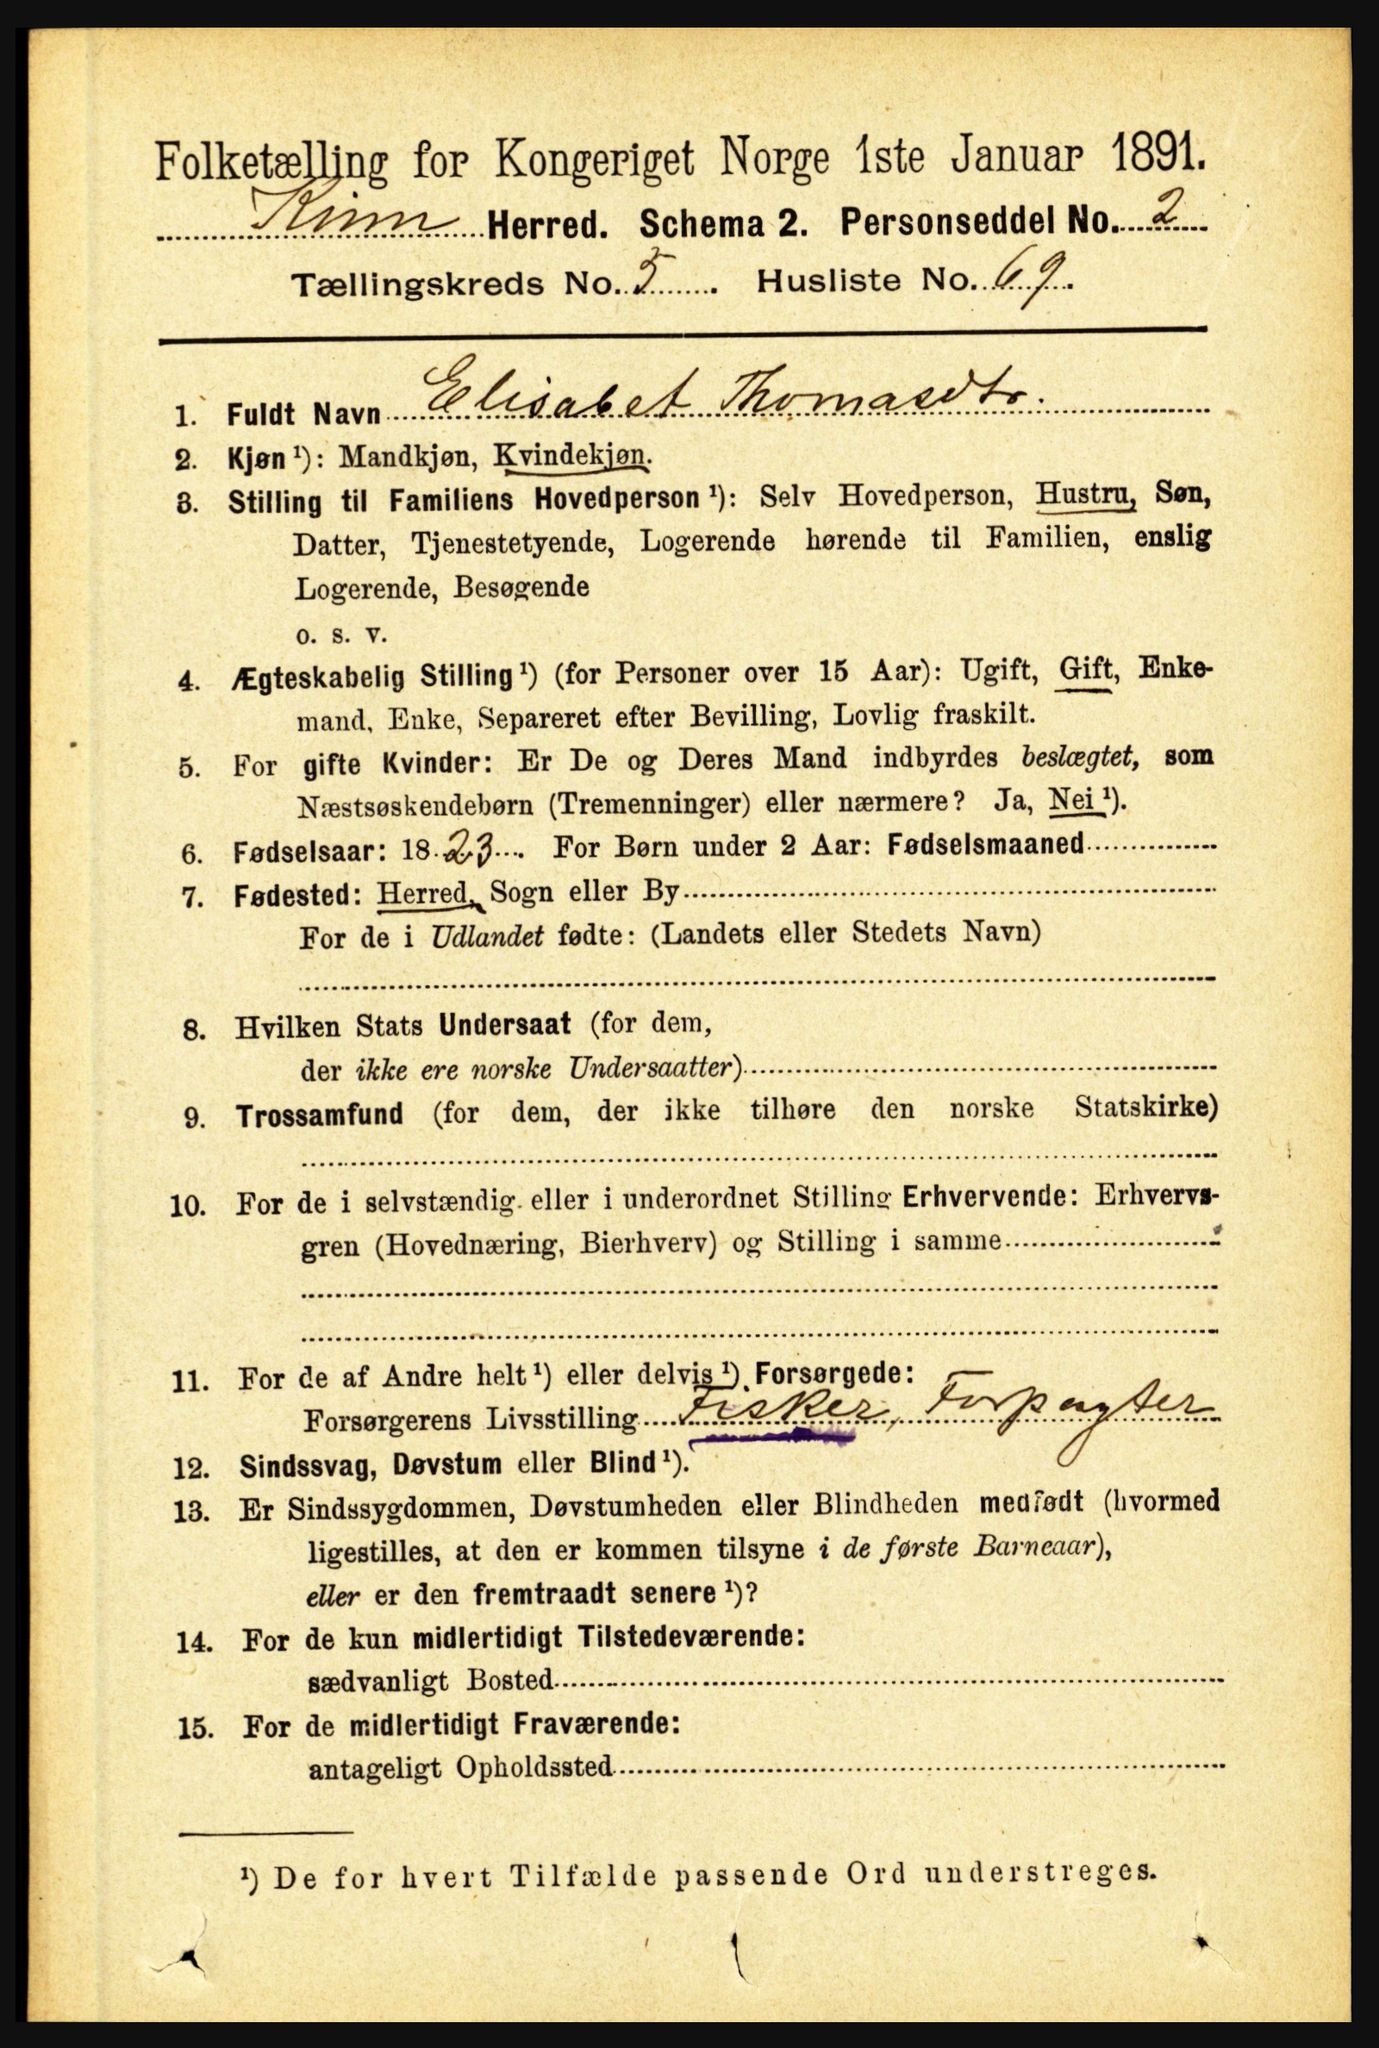 Folketælling for Kongeriget Norge 1ste Januar 1891.
Kinn Herred. Schema 2. Personseddel No. 2
Tællingskreds No. 5. Husliste No. 69.
1. Fuldt Navn Elisabet Thomasdtr.
2. Kjøn¹): Mandkjøn, Kvindekjøn.
3. Stilling til Familiens Hovedperson¹): Selv Hovedperson, Hustru, Søn,
Datter, Tjenestetyende, Logerende hørende til Familien, enslig
Logerende, Besøgende
o. s. v.
4. Ægteskabelig Stilling¹) (for Personer over 15 Aar): Ugift, Gift, Enke-
mand, Enke, Separeret efter Bevilling, Lovlig fraskilt.
5. For gifte Kvinder: Er De og Deres Mand indbyrdes beslægtet, som
Næstsøskendebørn (Tremenninger) eller nærmere? Ja, Nei¹).
6. Fødselsaar: 1823. For Børn under 2 Aar: Fødselsmaaned
7. Fødested: Herred, Sogn eller By
For de i Udlandet fødte: (Landets eller Stedets Navn)
8. Hvilken Stats Undersaat (for dem,
der ikke ere norske Undersaatter)
9. Trossamfund (for dem, der ikke tilhøre den norske Statskirke)
10. For de i selvstændig eller i underordnet Stilling Erhvervende: Erhvervs-
gren (Hovednæring, Bierhverv) og Stilling i samme
11. For de af Andre helt¹) eller delvis¹) Forsørgede:
Forsørgerens Livsstilling Fisker, Forpagter
12. Sindssvag, Døvstum eller Blind¹).
13. Er Sindssygdommen, Døvstumheden eller Blindheden medfødt (hvormed
ligestilles, at den er kommen tilsyne i de første Barneaar),
eller er den fremtraadt senere¹)?
14. For de kun midlertidigt Tilstedeværende:
sædvanligt Bosted
15. For de midlertidigt Fraværende:
antageligt Opholdssted
¹) De for hvert Tilfælde passende Ord understreges.